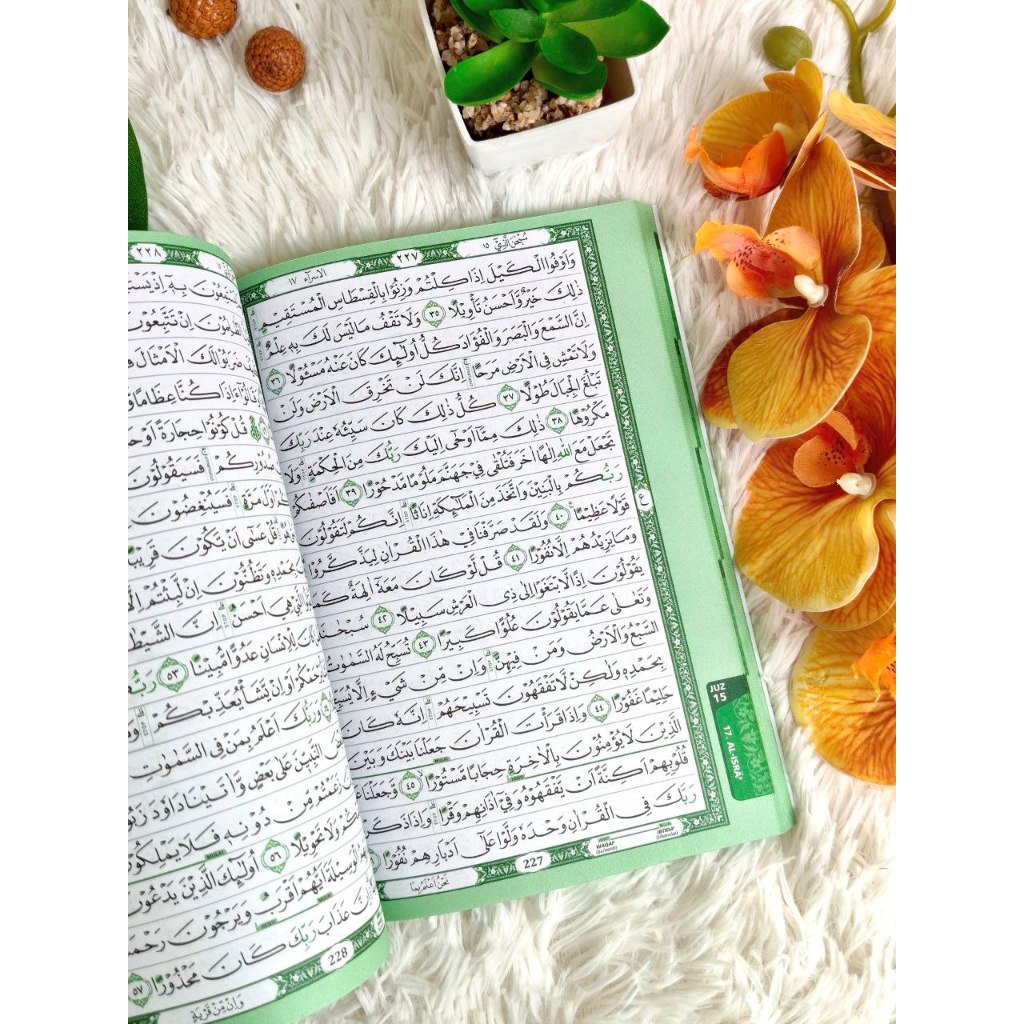 سُبْحٰنَ الَّذِيْ ١٥
٢٢٧
الاسراۤء ١٧
وَاَوْفُوا الْكَيْلَ اِذَا كِلْتُمْ وَزِنُوْا بِالْقِسْطَاسِ الْمُسْتَقِيْمِۗ
ذٰلِكَ خَيْرٌ وَّاَحْسَنُ تَأْوِيْلًا ٣٥ وَلَا تَقْفُ مَا لَيْسَ لَكَ بِهٖ عِلْمٌۗ
اِنَّ السَّمْعَ وَالْبَصَرَ وَالْفُؤَادَ كُلُّ اُولٰۤىِٕكَ كَانَ عَنْهُ مَسْـُٔوْلًا ٣٦
وَلَا تَمْشِ فِى الْاَرْضِ مَرَحًاۚ اِنَّكَ لَنْ تَخْرِقَ الْاَرْضَ وَلَنْ
تَبْلُغَ الْجِبَالَ طُوْلًا ٣٧ كُلُّ ذٰلِكَ كَانَ سَيِّئُهٗ عِنْدَ رَبِّكَ
مَكْرُوْهًا ٣٨ ذٰلِكَ مِمَّآ اَوْحٰٓى اِلَيْكَ رَبُّكَ مِنَ الْحِكْمَةِۗ
تَجْعَلْ مَعَ اللّٰهِ اِلٰهًا اٰخَرَ فَتُلْقٰى فِيْ جَهَنَّمَ مَلُوْمًا مَّدْحُوْرًا ٣٩
رَبُّكُمْ بِالْبَنِيْنَ وَاتَّخَذَ مِنَ الْمَلٰۤىِٕكَةِ اِنَاثًاۗ اِنَّكُمْ لَتَقُوْلُوْنَ
قَوْلًا عَظِيْمًا ٤٠ وَلَقَدْ صَرَّفْنَا فِيْ هٰذَا الْقُرْاٰنِ لِيَذَّكَّرُوْا
وَمَا يَزِيْدُهُمْ اِلَّا نُفُوْرًا ٤١ قُلْ لَّوْ كَانَ مَعَهٗٓ اٰلِهَةٌ
يَقُوْلُوْنَ اِذًا لَّابْتَغَوْا اِلٰى ذِى الْعَرْشِ سَبِيْلًا ٤٢
وَتَعٰلٰى عَمَّا يَقُوْلُوْنَ عُلُوًّا كَبِيْرًا ٤٣ تُسَبِّحُ لَهُ السَّمٰوٰتُ
السَّبْعُ وَالْاَرْضُ وَمَنْ فِيْهِنَّۗ وَاِنْ مِّنْ شَيْءٍ اِلَّا
بِحَمْدِهٖ وَلٰكِنْ لَّا تَفْقَهُوْنَ تَسْبِيْحَهُمْۗ اِنَّهٗ كَانَ
حَلِيْمًا غَفُوْرًا ٤٤ وَاِذَا قَرَأْتَ الْقُرْاٰنَ جَعَلْنَا بَيْنَكَ وَبَيْنَ
الَّذِيْنَ لَا يُؤْمِنُوْنَ بِالْاٰخِرَةِ حِجَابًا مَّسْتُوْرًا ٤٥ وَّجَعَلْنَا
قُلُوْبِهِمْ اَكِنَّةً اَنْ يَّفْقَهُوْهُ وَفِيْٓ اٰذَانِهِمْ وَقْرًاۗ وَاِذَا
رَبَّكَ فِى الْقُرْاٰنِ وَحْدَهٗ وَلَّوْا عَلٰٓى اَدْبَارِهِمْ نُفُوْرًا
227
نَحْنُ اَعْلَمُ بِمَا
ع
JUZ
15
17. AL-ISRA'
WAQAF
IBTIDA'
٢٢٨
بِهٖٓ اِذْ
اِنْ تَتَّبِعُوْنَ
ضَرَبُوْا لَكَ الْاَمْثَالَ
ءَاِذَا كُنَّا عِظَامًا
قُلْ كُوْنُوْا حِجَارَةً اَوْ
فَسَيَقُوْلُوْنَ
اَوَّلَ مَرَّةٍۗ فَسَيُنْغِضُوْنَ
قُلْ عَسٰٓى اَنْ يَّكُوْنَ
وَتَظُنُّوْنَ اِنْ لَّبِثْتُمْ
هِيَ اَحْسَنُۗ اِنَّ الشَّيْطٰنَ
لِلْاِنْسَانِ عَدُوًّا مُّبِيْنًا ٥٣
اَوْ اِنْ يَّشَأْ يُعَذِّبْكُمْۗ
وَرَبُّكَ اَعْلَمُ بِمَنْ فِى السَّمٰوٰتِ
النَّبِيّٖنَ عَلٰى بَعْضٍ وَّاٰتَيْنَا دَاوٗدَ
زَعَمْتُمْ مِّنْ دُوْنِهٖ فَلَا يَمْلِكُوْنَ
وَلَا تَحْوِيْلًا ٥٦ اُولٰۤىِٕكَ الَّذِيْنَ يَدْعُوْنَ
الْوَسِيْلَةَ اَيُّهُمْ اَقْرَبُ وَيَرْجُوْنَ
عَذَابَ رَبِّكَ كَانَ مَحْذُوْرًا ٥٧
228
وَاِنْ مِّنْ قَرْيَةٍ